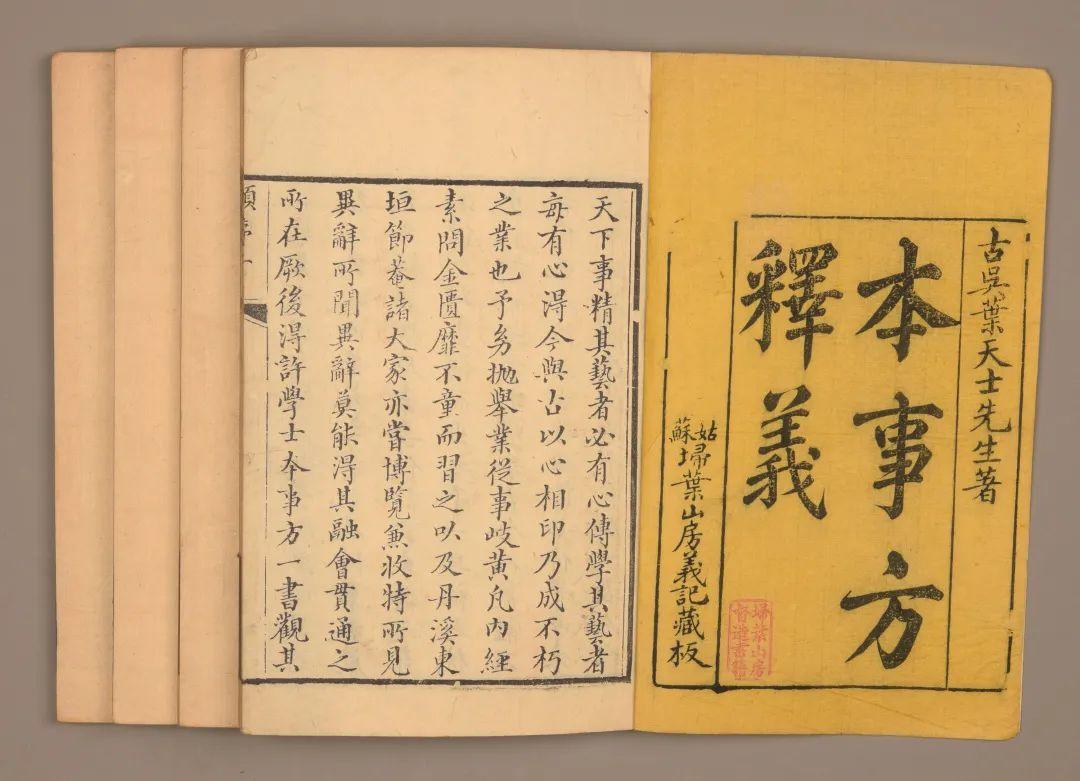 古吳葉天士先生著
本事方
釋義
姑蘇埽葉山房義記藏板
埽葉山房
督造書籍
天下事精其藝者必有心傳學其藝者
每有心得今與古以心相印乃成不朽
之業也予㓜抛舉業從事岐黄凡內經
素問金匱靡不童而習之以及丹溪東
垣節菴諸大家亦嘗博覽兼收特所見
異辭所聞異辭莫能得其融會貫通之
所在厥後得許學士本事方一書觀其